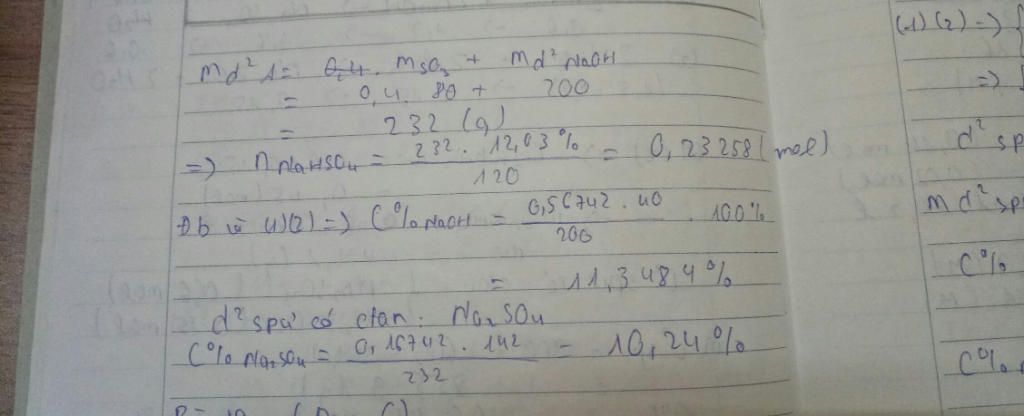 md² 1 = 0,4. MSO₃ + md² NaOH
= 0,4. 80 + 200
= 232 (g)
=) nNaHSO₄ = 232 . 12,03% / 120 = 0,23258 (mol)
(1)(2) =) C%NaOH = 0,56742 . 40 / 200 . 100%
= 11,3484%
d² spư có ctan: Na₂SO₄
C%Na₂SO₄ = 0,16742 . 142 / 232 = 10,24%
(1)(2) =) {
=)
d² sp
md² sp
C%
C%